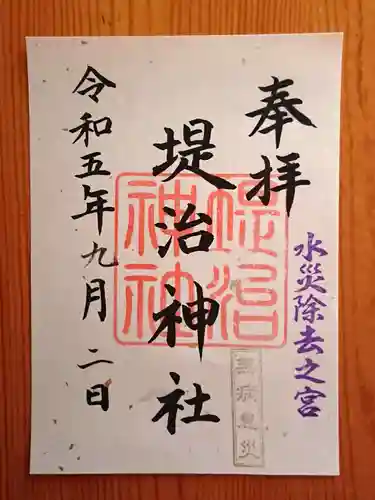 奉拝
水災除去之宮
堤治神社
堤治
神社
無病息災
令和五年九月二日